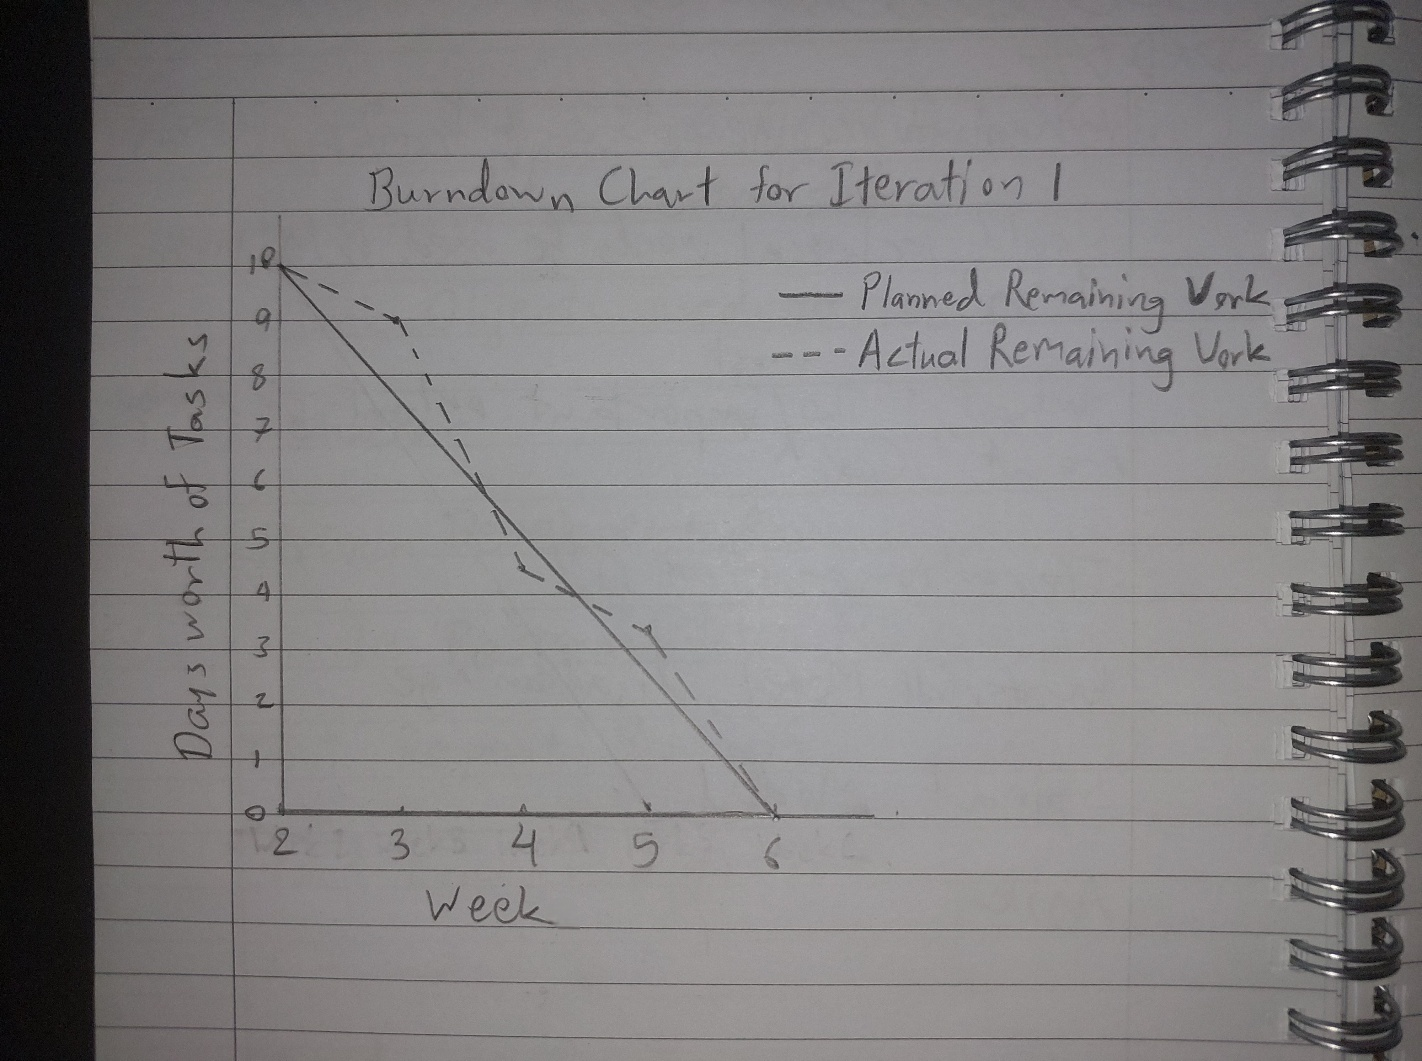 Burndown Chart for Iteration 1
Planned Remaining Work
Actual Remaining Work
Days worth of Tasks
10
9
8
7
6
5
4
3
2
1
0
2 3 4 5 6
Week